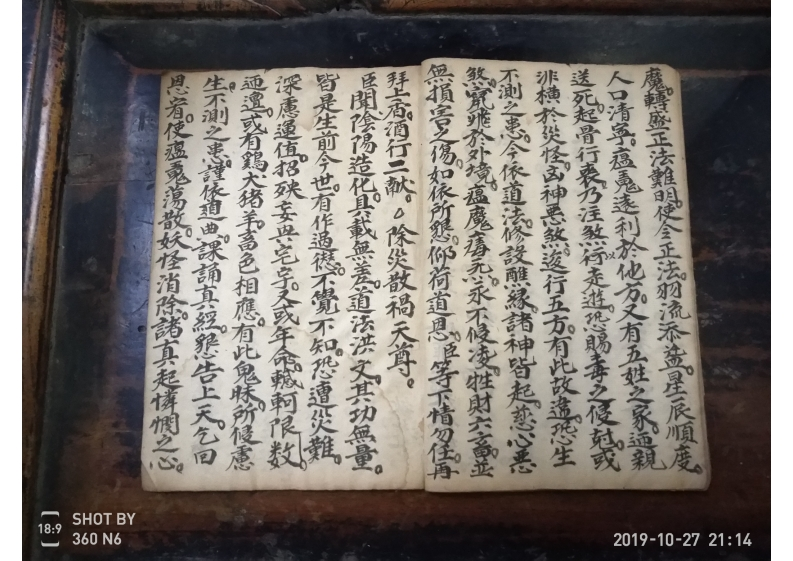 魔轉歷正法難明使令正法羽流添益星辰順度
人口清寧瘟鬼遠利於他方又有五姓之家逥親
送死起骨行喪乃注煞符走遊恐賜毒之侵尅或
非横於災怪凶神悪煞返行五方有此故違恐生
不測之患今依道法修設醮緣諸神皆起慈心悪
煞竄飛於外境瘟魔毒炁永不侵凌牲財六畜並
無損害之傷如依所懇仰荷道恩臣等下情勿任再
拜上启酒行二献 除災散禍天尊
臣聞陰陽造化具載無差道法洪文其功無量
皆是生前今世有作過愆不覺不知恐遭災難
深慮運值招殃妄興宅宇又或年命轗軻限数
逥邅或有鷄犬猪羊畜色相應有此鬼昧所侵慮
生不測之患謹依道典課誦真經懇告上天乞回
恩宥使瘟鬼蕩散妖怪消除諸真起憐憫之心
SHOT BY
360 N6
18:9
2019-10-27 21:14